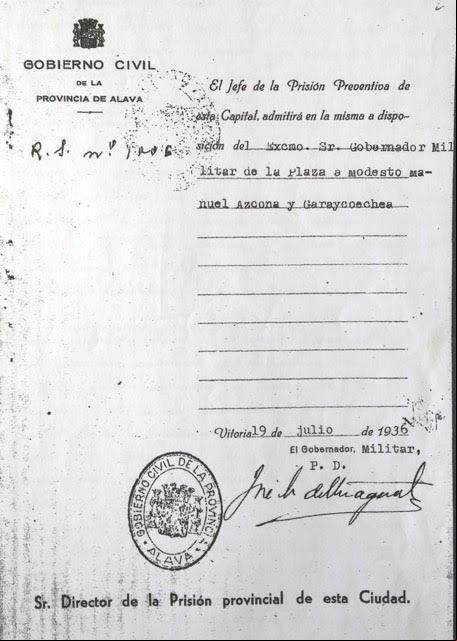 GOBIERNO CIVIL
DE LA
PROVINCIA DE ALAVA
R. S. nº 1006
El Jefe de la Prisión Preventiva de
esta Capital, admitirá en la misma a dispo-
sición del Excmo. Sr. Gobernador Mil
litar de la Plaza a Modesto Ma-
nuel Azcona y Garaycoechea
Vitoria 19 de julio de 1936
El Gobernador, Militar,
P. D.
GOBIERNO CIVIL DE LA PROVINCIA
· ALAVA ·
Sr. Director de la Prisión provincial de esta Ciudad.